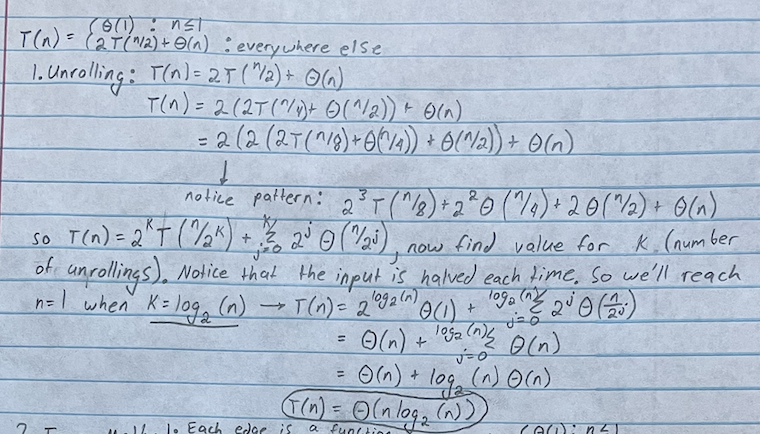 T(n) = { Θ(1) : n≤1
{ 2T(n/2) + Θ(n) : everywhere else
1. Unrolling: T(n) = 2T(n/2) + Θ(n)
T(n) = 2(2T(n/4) + Θ(n/2)) + Θ(n)
= 2(2(2T(n/8) + Θ(n/4)) + Θ(n/2)) + Θ(n)
↓
notice pattern: 2³T(n/8) + 2²Θ(n/4) + 2Θ(n/2) + Θ(n)
so T(n) = 2^K T(n/2^K) + Σ_{j=0}^{K} 2^j Θ(n/2^j), now find value for K (number
of unrollings). Notice that the input is halved each time. So we'll reach
n=1 when K=log₂(n) → T(n) = 2^{log₂(n)} Θ(1) + Σ_{j=0}^{log₂(n)} 2^j Θ(n/2^j)
= Θ(n) + Σ_{j=0}^{log₂(n)} Θ(n)
= Θ(n) + log₂(n) Θ(n)
T(n) = Θ(n log₂(n))
1. Each edge is a